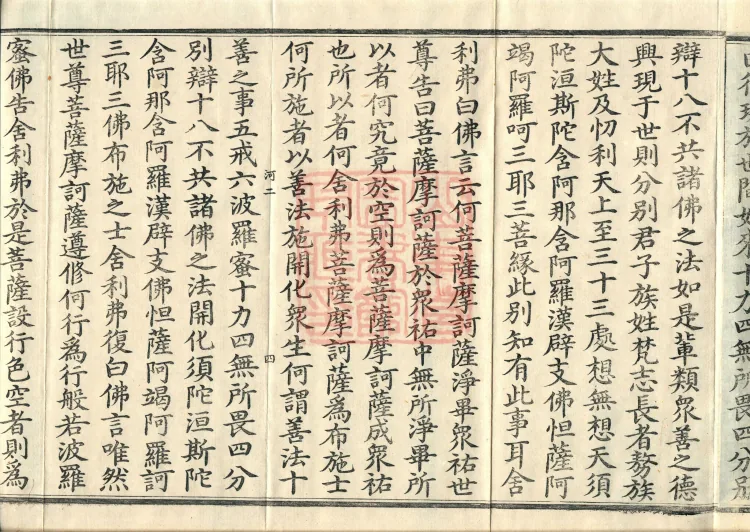 十力四無所畏四分別
辯十八不共諸佛之法如是軰類衆善之德
興現于世則分別君子族姓梵志長者勢族
大姓及忉利天上至三十三處想無想天須
陀洹斯陀含阿那含阿羅漢辟支佛怛薩阿
竭阿羅呵三耶三菩緣此別知有此事耳舍
利弗白佛言云何菩薩摩訶薩淨畢衆祐世
尊告曰菩薩摩訶薩於衆祐中無所淨畢所
以者何究竟於空則爲菩薩摩訶薩成衆祐
也所以者何舍利弗菩薩摩訶薩爲布施士
何所施者以善法施開化衆生何謂善法十
河二 四
善之事五戒六波羅蜜十力四無所畏四分
別辯十八不共諸佛之法開化須陀洹斯陀
含阿那含阿羅漢辟支佛怛薩阿竭阿羅訶
三耶三佛布施之士舍利弗復白佛言唯然
世尊菩薩摩訶薩遵修何行爲行般若波羅
蜜佛告舍利弗於是菩薩設行色空者則爲